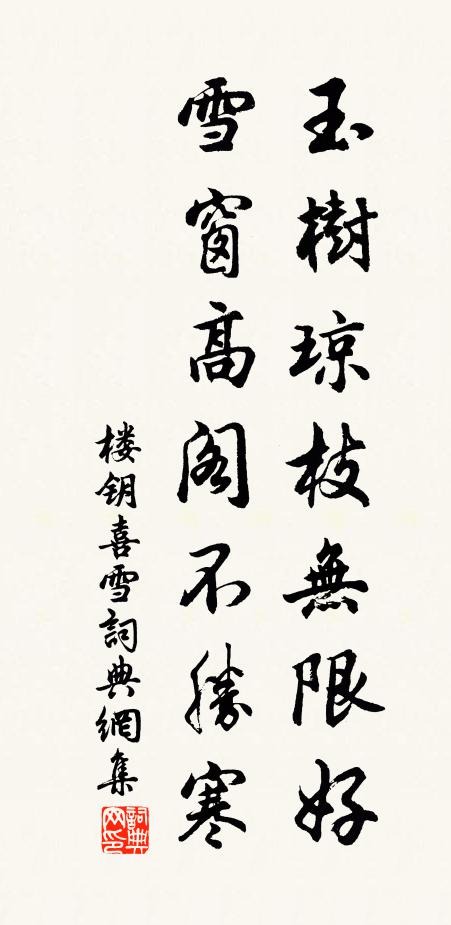 玉樹琼枝無限好
雪窗高阁不勝寒
楼钥喜雪詞典網集
詞典
网印